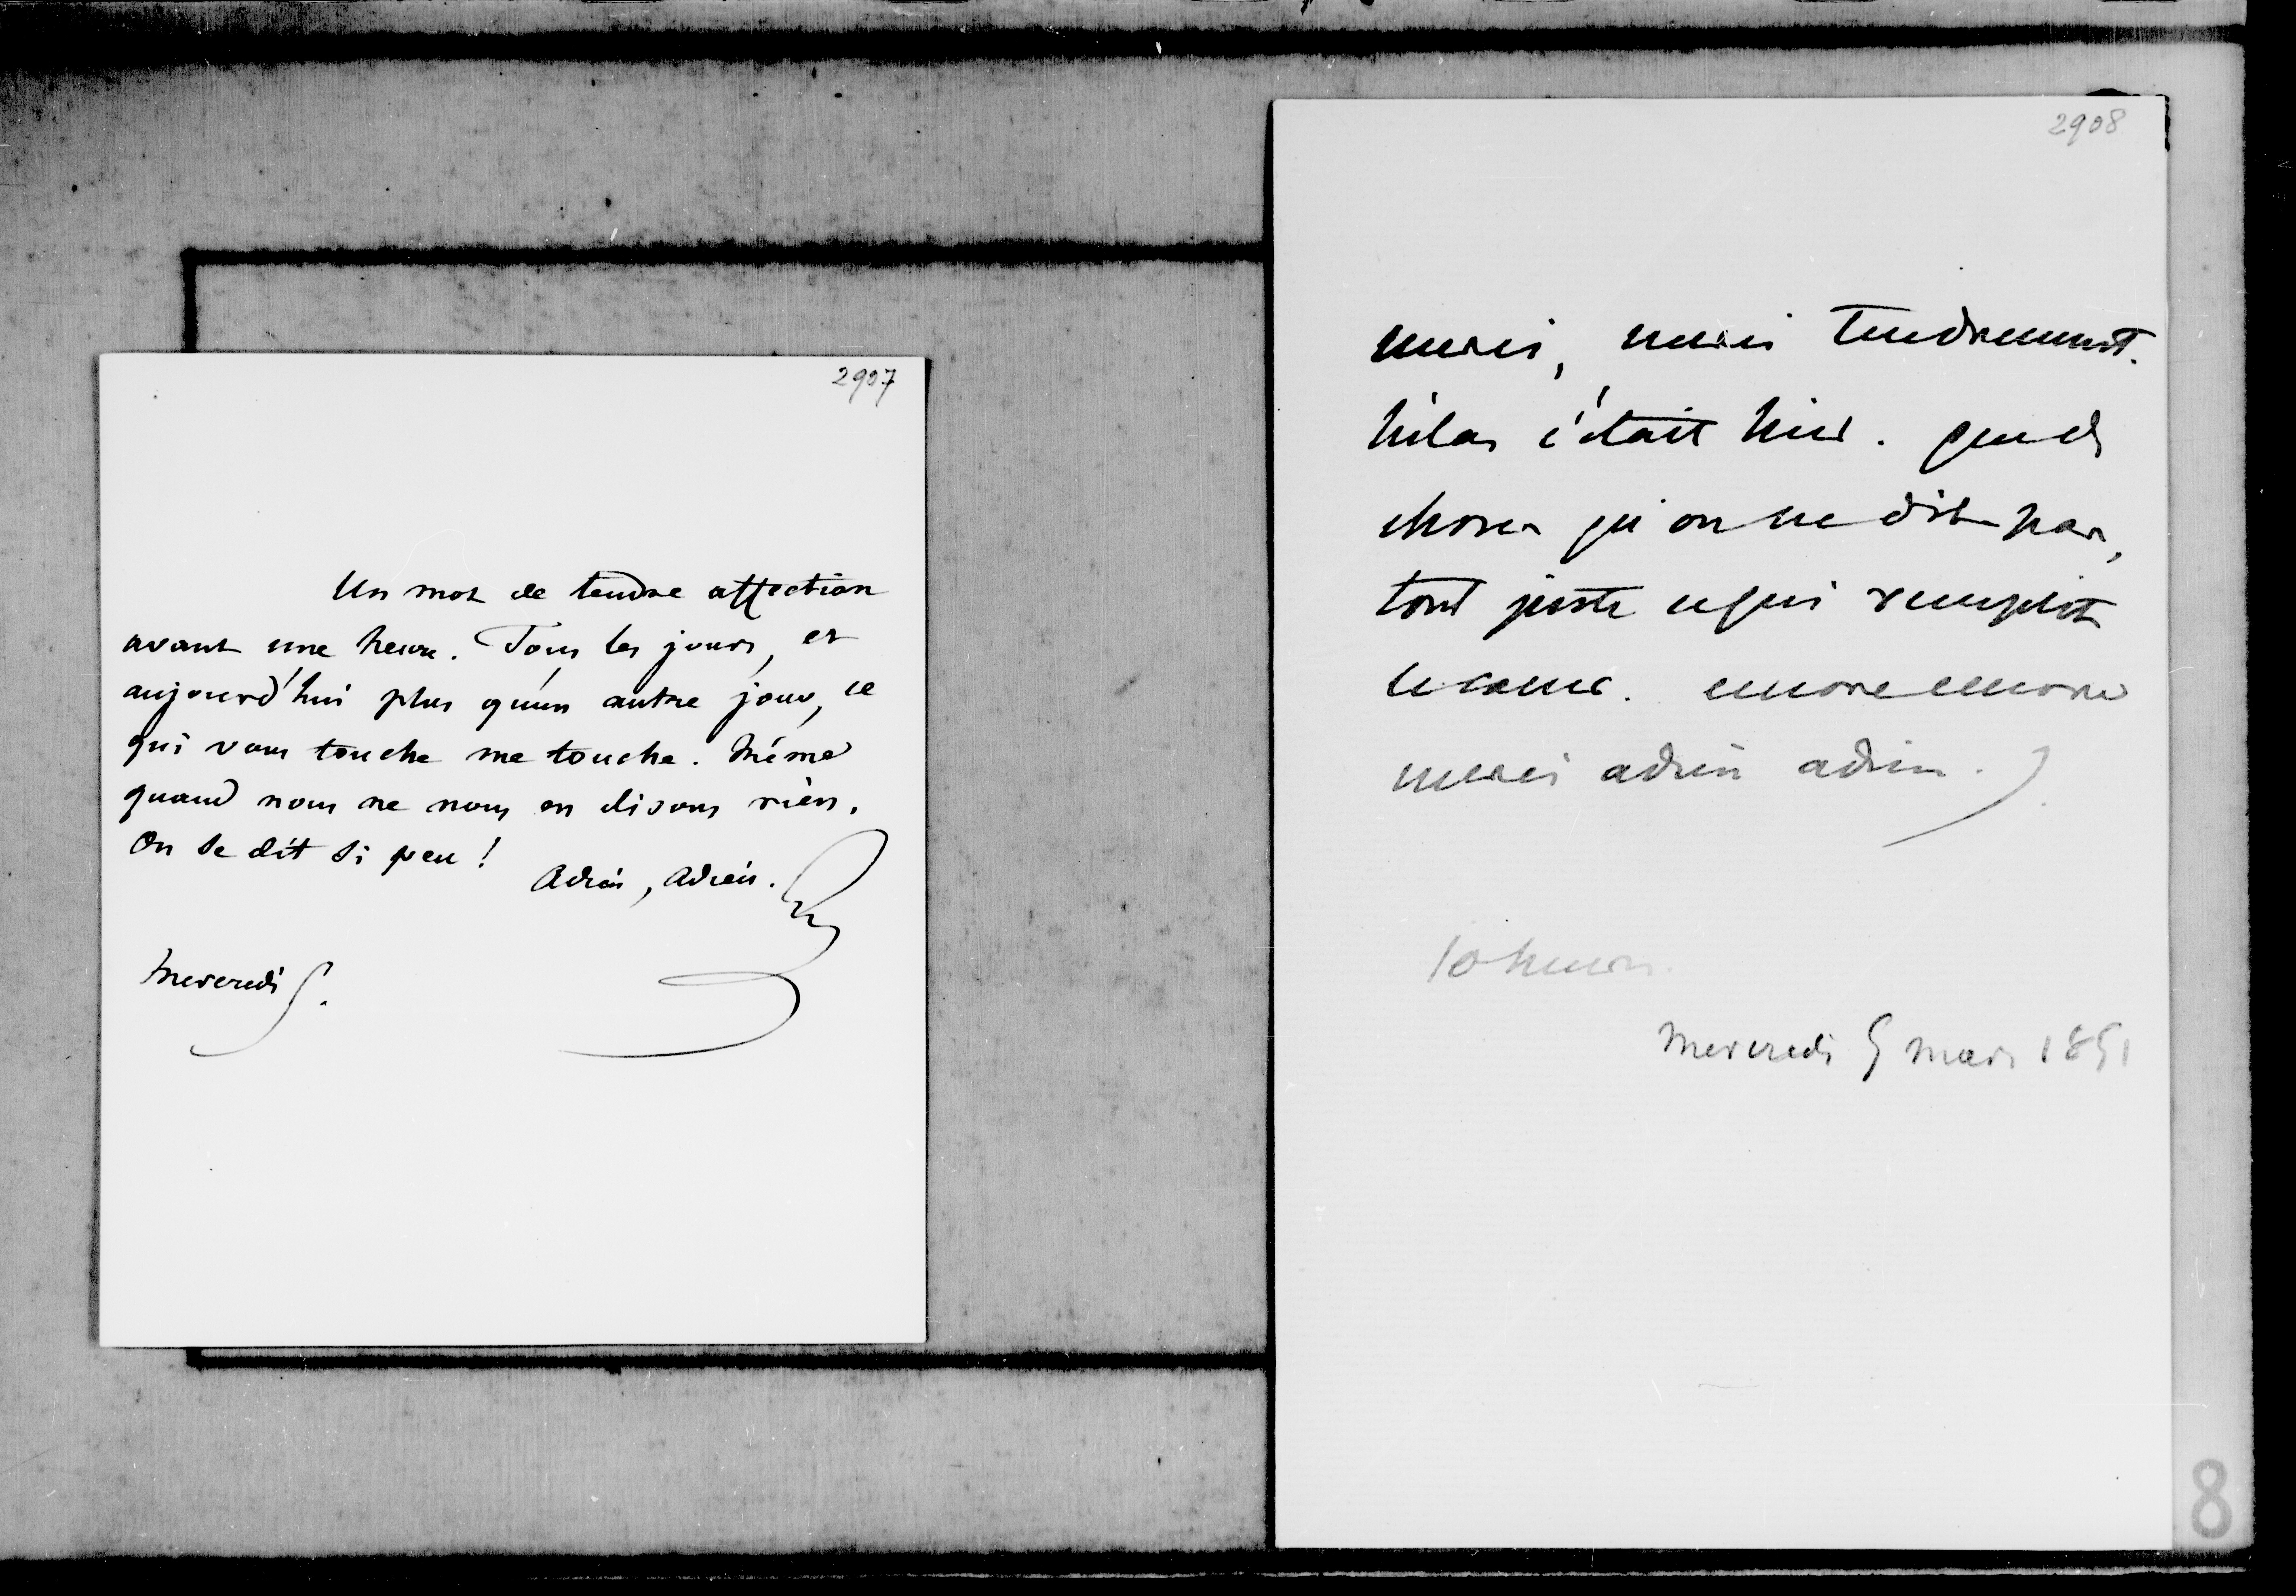 2907
Un mot de tendre affection
avant une heure. Tous les jours, et
aujourd'hui plus qu'un autre jour, ce
qui vous touche me touche. Même
quand nous ne nous en disons rien.
On se dit si peu !
Adieu, Adieu.
Mercredi 5.
2908
merci, merci tendrement.
hélas c'était hier. que de
choses qu'on ne dit pas,
tout juste ce qui remplit
le coeur. encore encore
merci adieu adieu.
10 heures.
Mercredi 5 mars 1851
8